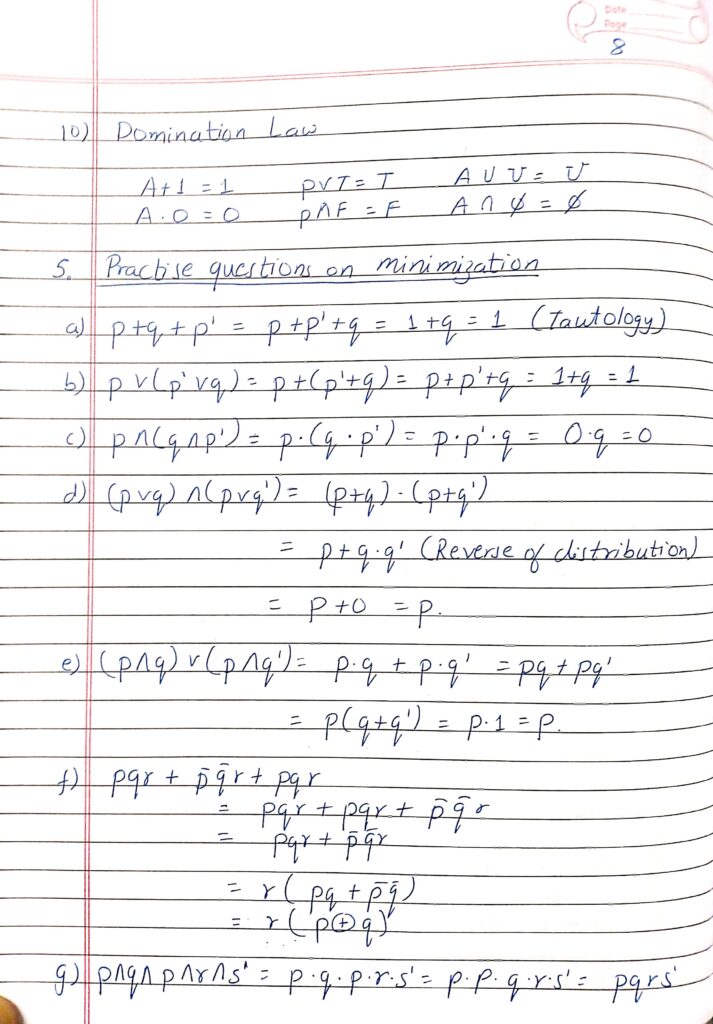 Date
Page
8
10) Domination Law
A+1 = 1 p∨T = T A ∪ U = U
A.0 = 0 p∧F = F A ∩ ∅ = ∅
5. Practise questions on minimization
a) p+q+p' = p+p'+q = 1+q = 1 (Tautology)
b) p∨(p'∨q) = p+(p'+q) = p+p'+q = 1+q = 1
c) p∧(q∧p') = p·(q·p') = p·p'·q = 0·q = 0
d) (p∨q)∧(p∨q') = (p+q)·(p+q')
= p+q·q' (Reverse of distribution)
= p+0 = p.
e) (p∧q)∨(p∧q') = p·q + p·q' = pq + pq'
= p(q+q') = p·1 = p.
f) pqr + p̄q̄r + pqr
= pqr + pqr + p̄q̄r
= pqr + p̄q̄r
= r(pq + p̄q̄)
= r(p⊕q)
g) p∧q∧p∧r∧s' = p·q·p·r·s' = p.p.q.r.s' = pqrs'